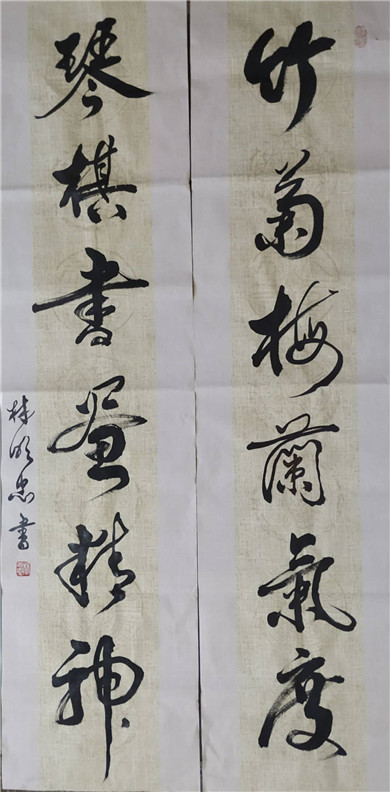 竹菊梅蘭氣度
琴棋書畫精神
林明忠書